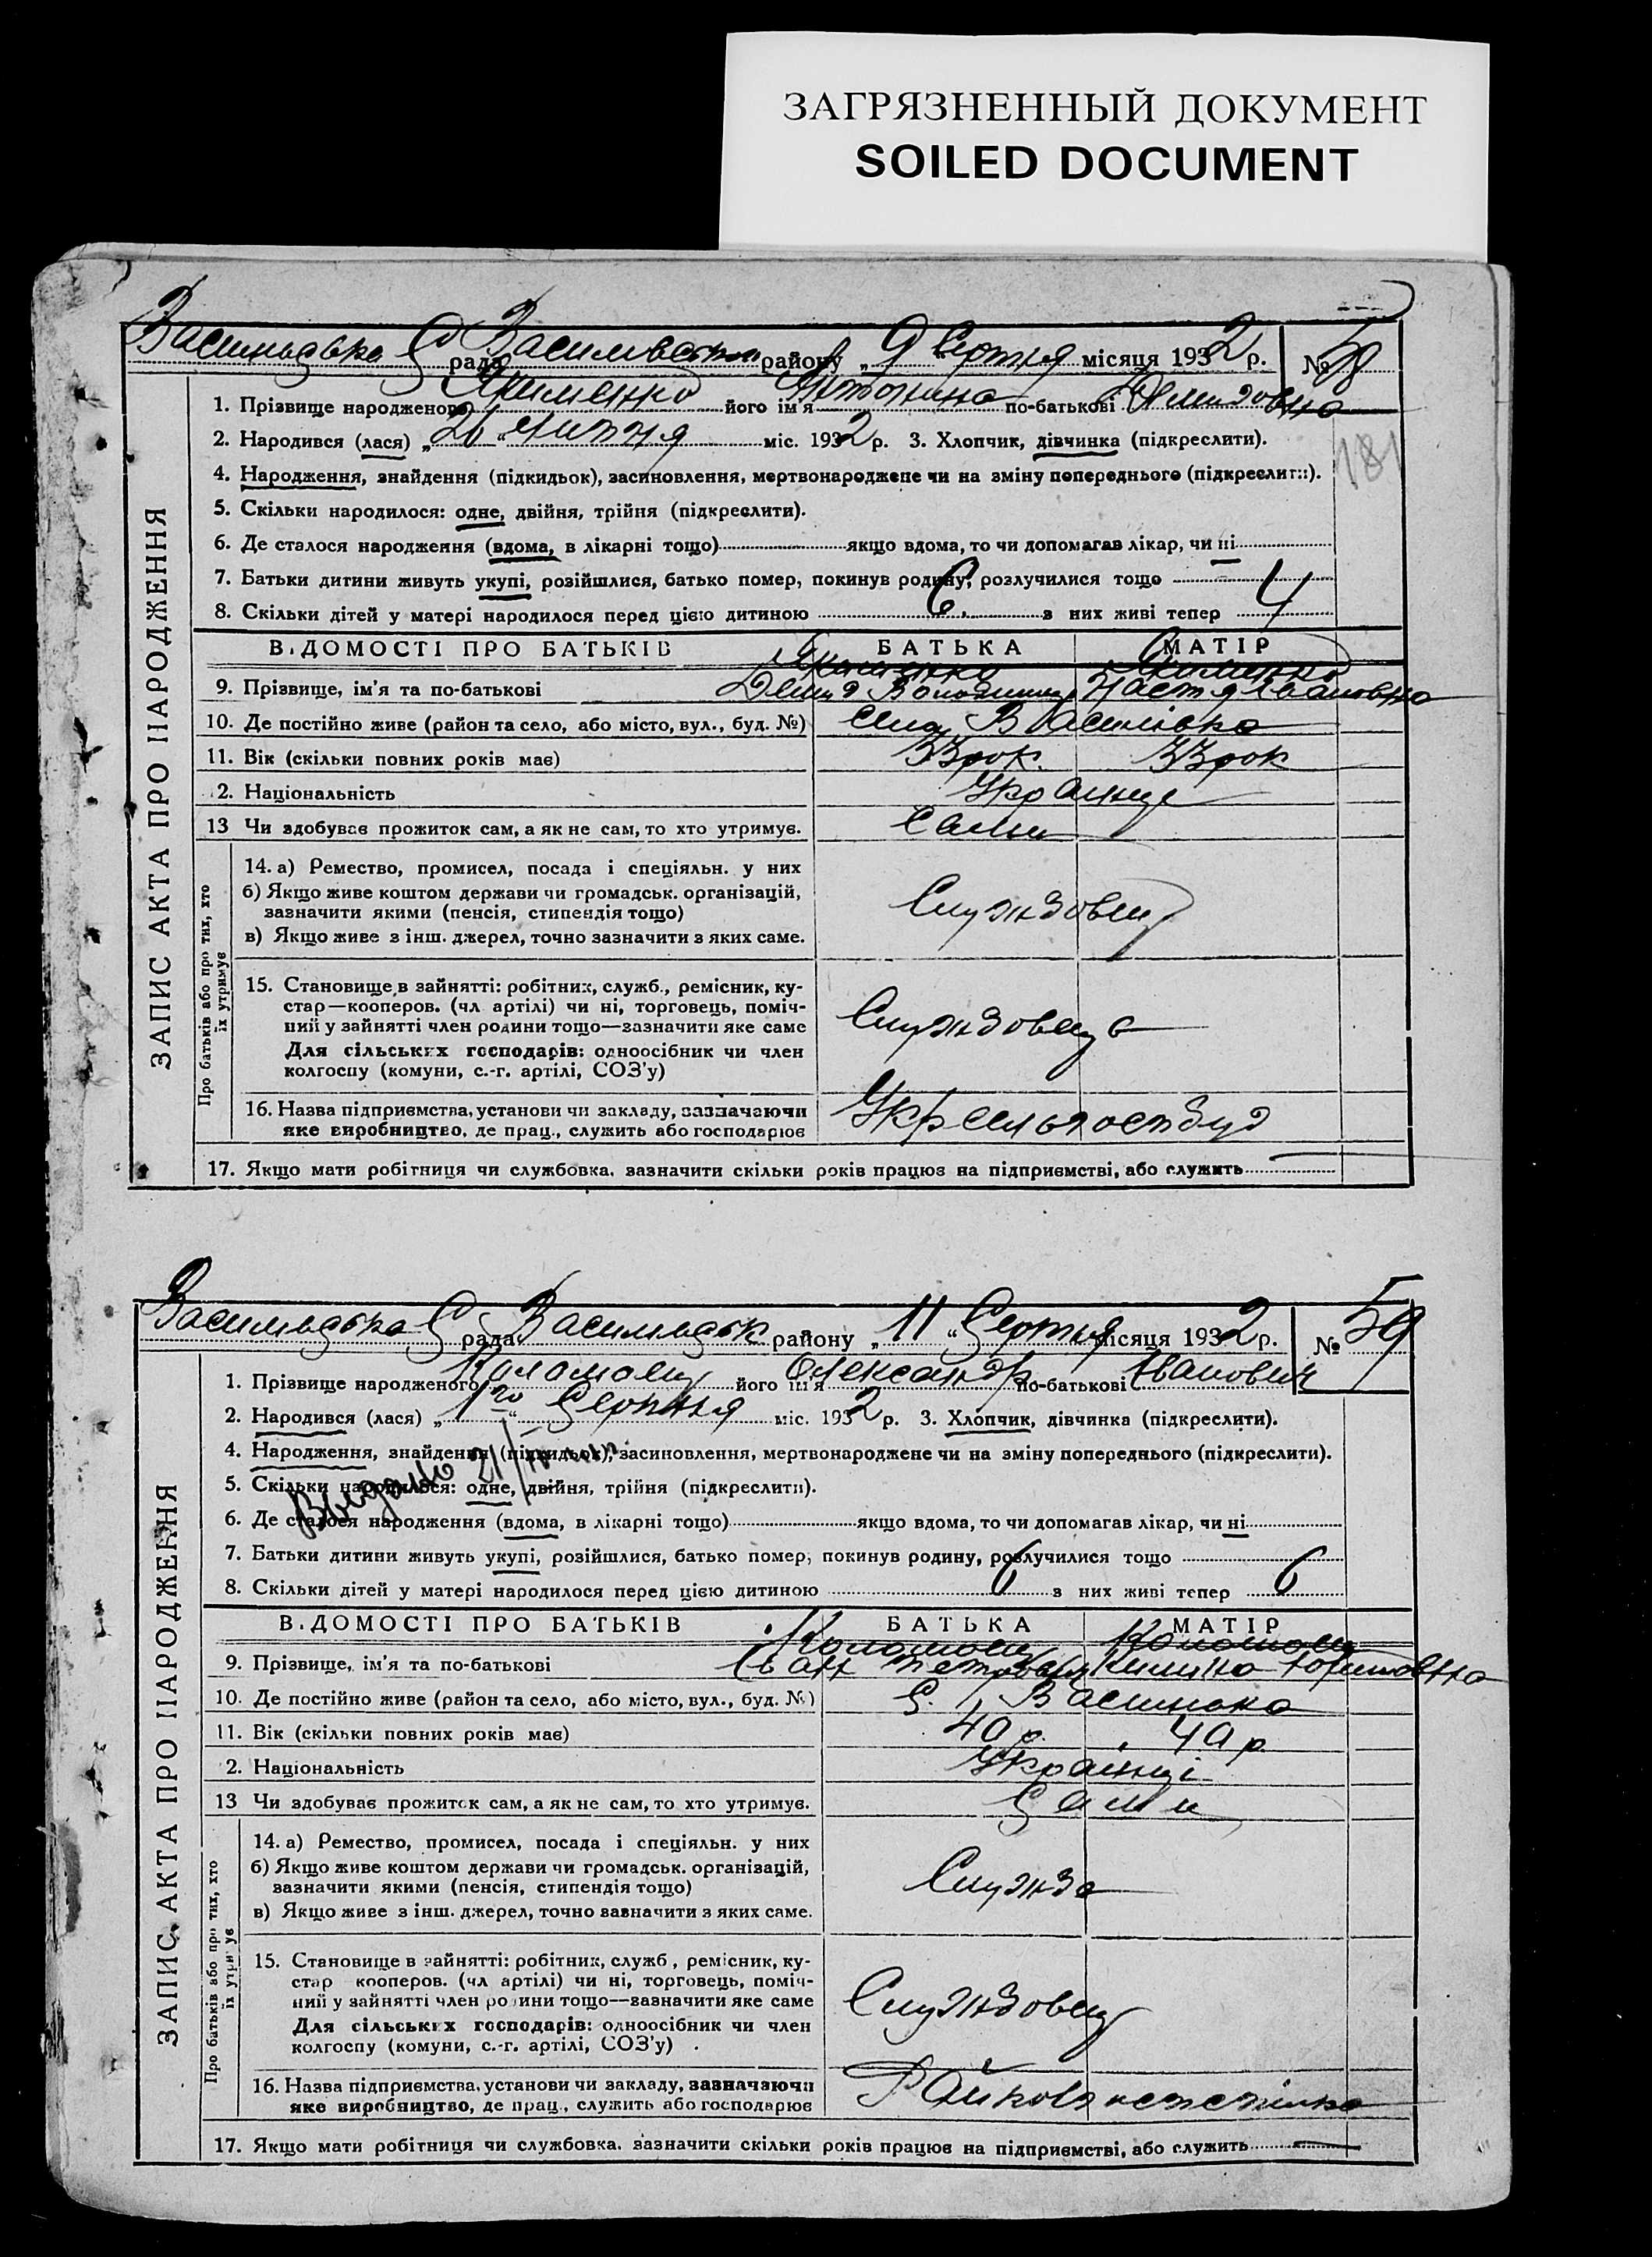 ЗАГРЯЗНЕННЫЙ ДОКУМЕНТ
SOILED DOCUMENT
ЗАПИС АКТА ПРО НАРОДЖЕННЯ
Васильевка С рада Васильвська району „9 Серпня місяця 1932 р. № 58
1. Прізвище народженого його ім'я Антонина по-батькові Демидовна
2. Народився (лася) „26“ Липня міс. 1932 р. 3. Хлопчик, дівчинка (підкреслити).
181
4. Народження, знайдення (підкидьок), засиновлення, мертвонароджене чи на зміну попереднього (підкреслити).
5. Скільки народилося: одне, двійня, трійня (підкреслити).
6. Де сталося народження (вдома, в лікарні тощо) якщо вдома, то чи допомагав лікар, чи ні
7. Батьки дитини живуть укупі, розійшлися, батько помер, покинув родину, розлучилися тощо
8. Скільки дітей у матері народилося перед цією дитиною 6. з них живі тепер 4
ВІДОМОСТІ ПРО БАТЬКІВ БАТЬКА МАТІР
9. Прізвище, ім'я та по-батькові Демид Настя Івановна
10. Де постійно живе (район та село, або місто, вул., буд. №) село Василівка
11. Вік (скільки повних років має) 33 рок. 33 рок
12. Національність Українці
13 Чи здобуває прожиток сам, а як не сам, то хто утримує. Сами
Про батьків або про тих, хто їх утримує
14. а) Ремество, промисел, посада і спеціяльн. у них
б) Якщо живе коштом держави чи громадськ. організацій,
зазначити якими (пенсія, стипендія тощо)
в) Якщо живе з інш. джерел, точно зазначити з яких саме.
Службовец
15. Становище в зайнятті: робітник, служб., ремісник, ку-
стар—кооперов. (чл артілі) чи ні, торговець, поміч-
ний у зайнятті член родини тощо—зазначити яке саме
Для сільських господарів: одноосібник чи член
колгоспу (комуни, с.-г. артілі, СОЗ'у)
Службовец
16. Назва підприємства, установи чи закладу, зазначаючи
яке виробництво, де прац., служить або господарює
17. Якщо мати робітниця чи службовка. зазначити скільки років працює на підприємстві, або служить
ЗАПИС АКТА ПРО НАРОДЖЕННЯ
Васильевка С рада Васильевськ району „11“ Серпня місяця 1932 р. № 59
1. Прізвище народженого Коломоец його ім'я Олександр по-батькові Іванович
2. Народився (лася) „1го“ Серпня міс. 1932 р. 3. Хлопчик, дівчинка (підкреслити).
4. Народження, знайдення (підкидьок), засиновлення, мертвонароджене чи на зміну попереднього (підкреслити).
Выдано 21/
5. Скільки народилося: одне, двійня, трійня (підкреслити).
6. Де сталося народження (вдома, в лікарні тощо) якщо вдома, то чи допомагав лікар, чи ні
7. Батьки дитини живуть укупі, розійшлися, батько помер, покинув родину, розлучилися тощо
8. Скільки дітей у матері народилося перед цією дитиною 6 з них живі тепер 6
ВІДОМОСТІ ПРО БАТЬКІВ БАТЬКА МАТІР
9. Прізвище, ім'я та по-батькові Коломоец Іван Петрович Коломоец Килина
10. Де постійно живе (район та село, або місто, вул., буд. №) С. Василівка
11. Вік (скільки повних років має) 40 р. 40 р.
12. Національність Українці
13 Чи здобуває прожиток сам, а як не сам, то хто утримує. Сами
Про батьків або про тих, хто їх утримує
14. а) Ремество, промисел, посада і спеціяльн. у них
б) Якщо живе коштом держави чи громадськ. організацій,
зазначити якими (пенсія, стипендія тощо)
в) Якщо живе з інш. джерел, точно зазначити з яких саме.
Служба
15. Становище в зайнятті: робітник, служб., ремісник, ку-
стар кооперов. (чл артілі) чи ні, торговець, поміч-
ний у зайнятті член родини тощо—зазначити яке саме
Для сільських господарів: одноосібник чи член
колгоспу (комуни, с.-г. артілі, СОЗ'у)
Службовец
16. Назва підприємства, установи чи закладу, зазначаючи
яке виробництво, де прац., служить або господарює
17. Якщо мати робітниця чи службовка. зазначити скільки років працює на підприємстві, або служить